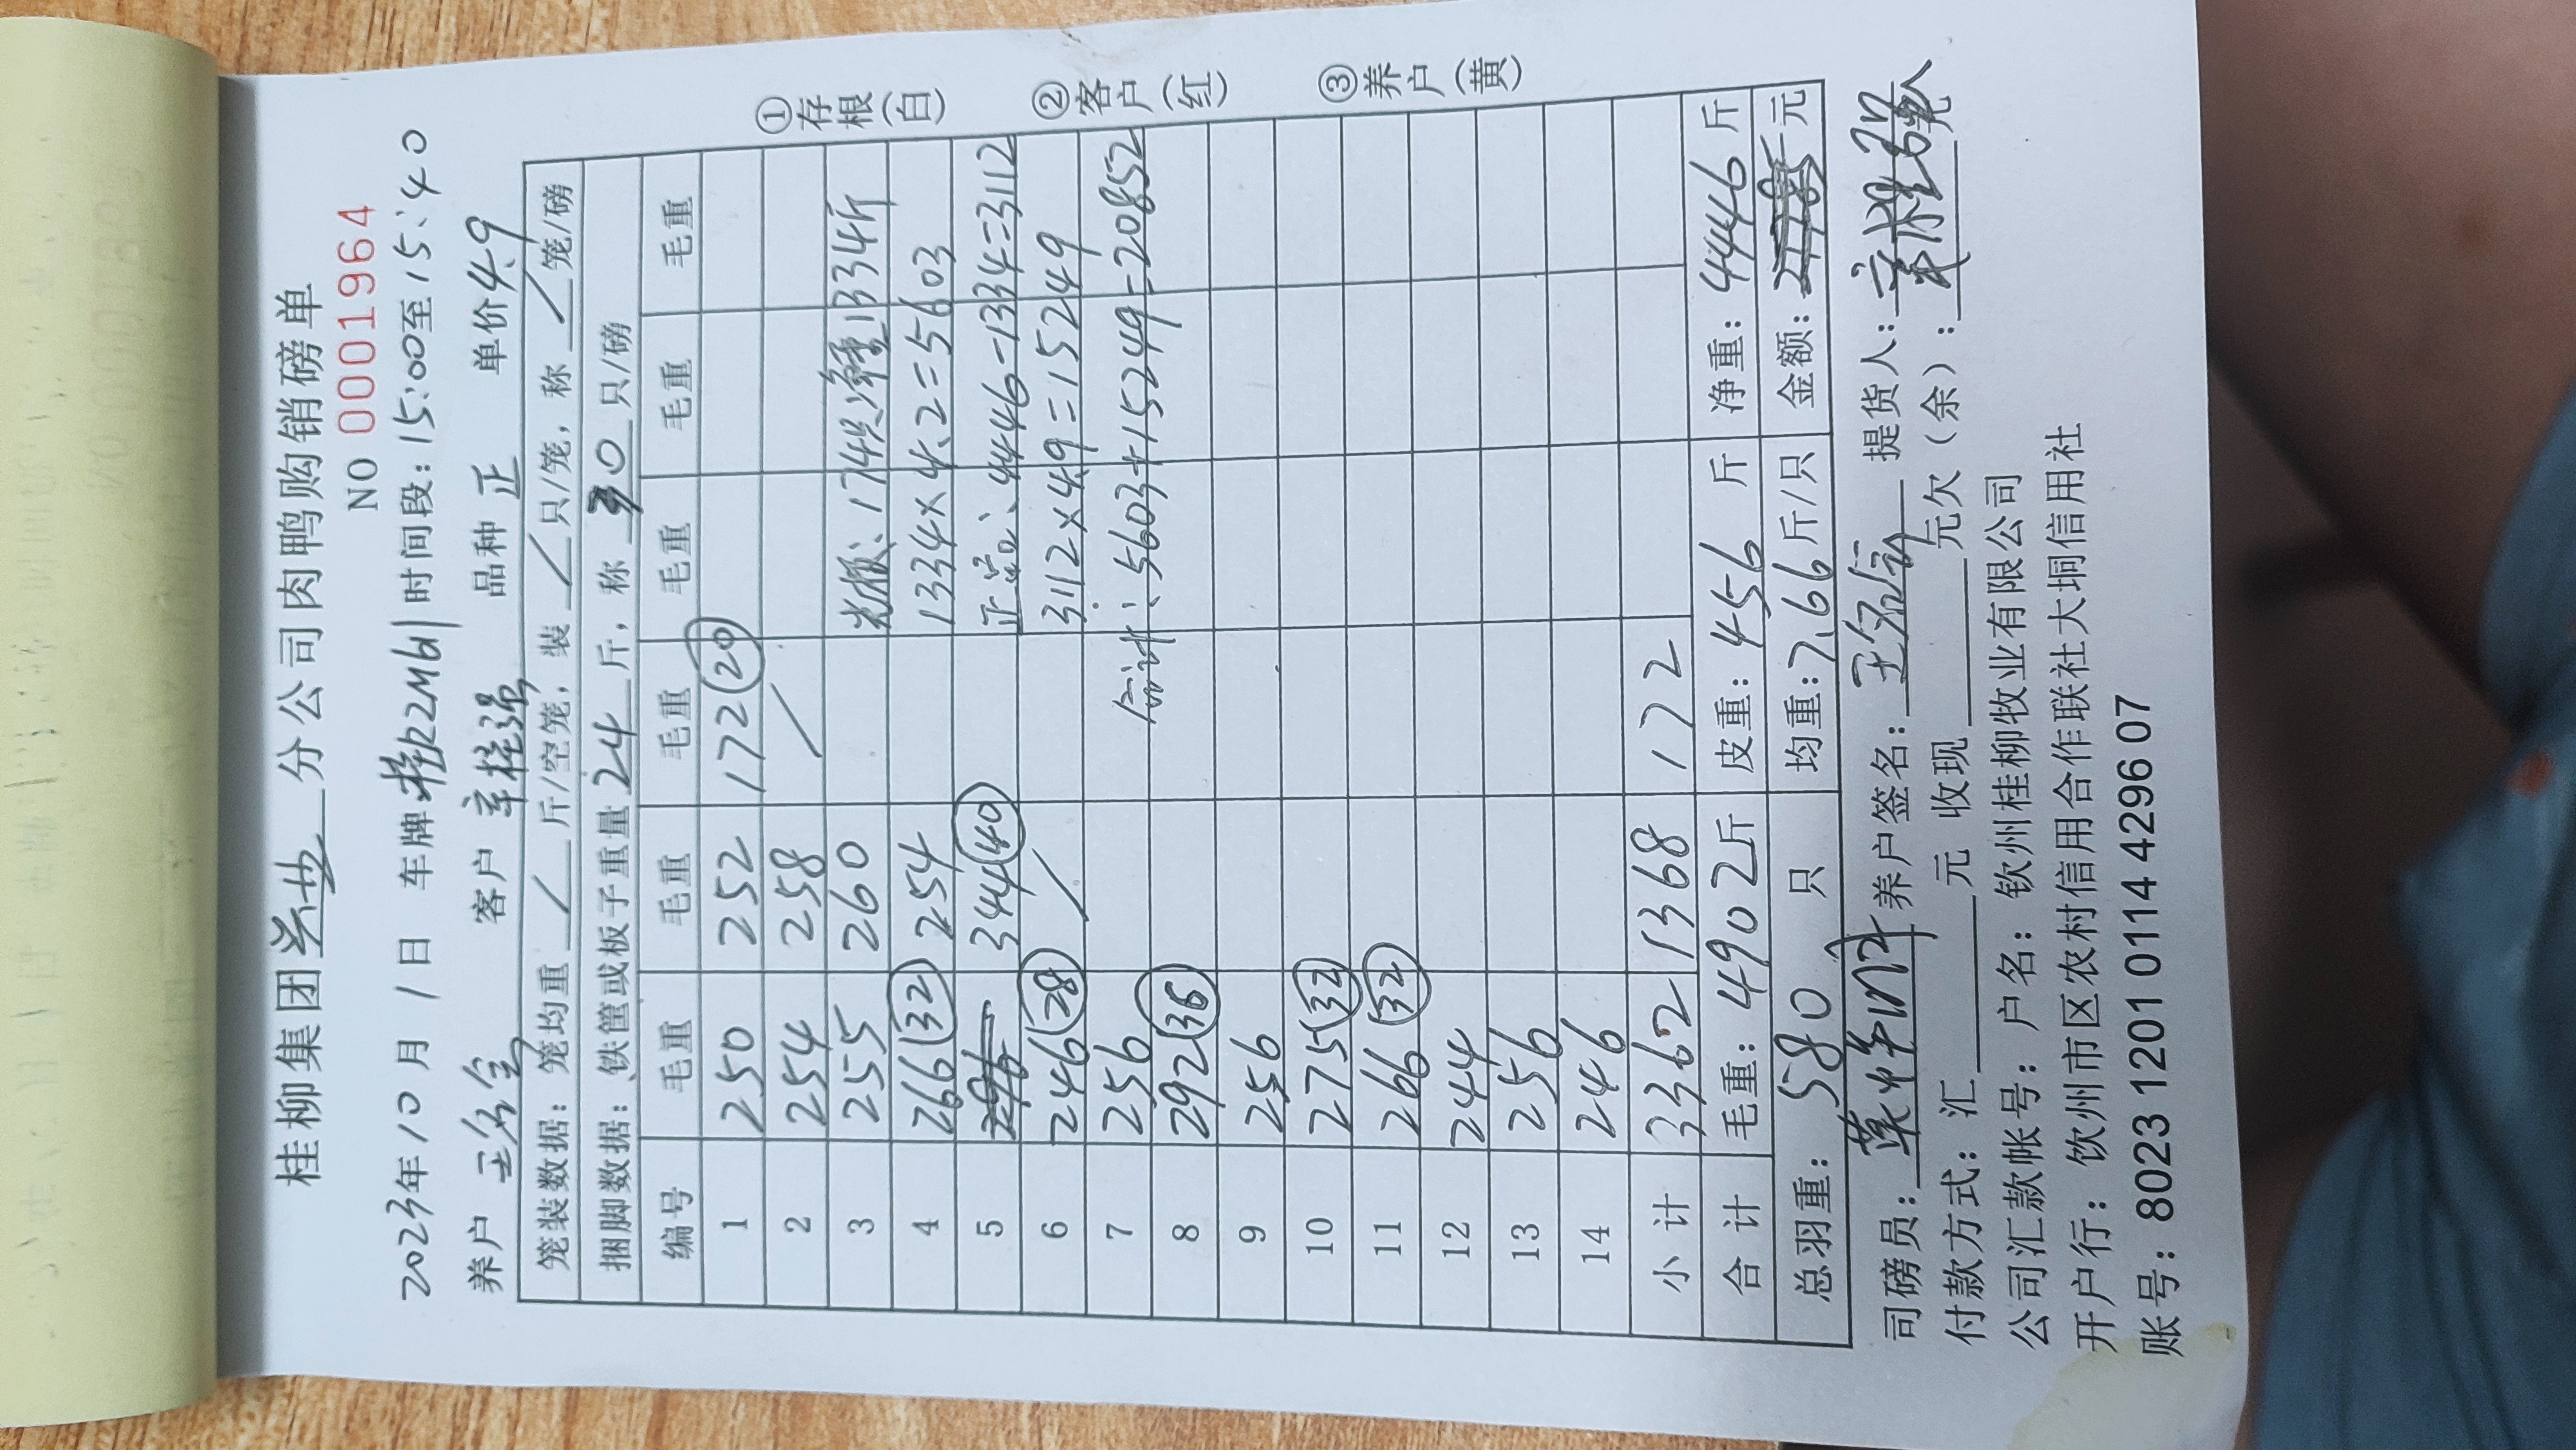 桂柳集团兴业分公司肉鸭购销磅单
NO 0001964
2023年10月1日 车牌桂K2M61 时间段：15:00至15:40
养户 王名全 客户 辛桂强 品种 正 单价4.9
笼装数据：笼均重 / 斤/空笼，装 / 只/笼，称 / 笼/磅
捆脚数据：铁筐或板子重量24斤，称 30 只/磅
编号 毛重 毛重 毛重 毛重 毛重 毛重
1 250 252 172(20)
2 254 258 /
3 255 260 光板、174只净重1334斤
4 266(32) 254 1334×4.2=5603
5 344(40) 正品、4446-1334=3112
6 246(28) / 3112×4.9=15249
7 256 合计：5603+15249=20852
8 292(36)
9 256
10 275(32)
11 266(32)
12 244
13 256
14 246
小计 3362 1368 172
合计 毛重：4902斤 皮重：456 斤 净重：4446斤
总羽重：580 只 均重：7.66斤/只 金额： 元
司磅员： 养户签名： 提货人：辛桂强
付款方式：汇 元 收现 元欠（余）：
公司汇款帐号：户名：钦州桂柳牧业有限公司
开户行：钦州市区农村信用合作联社大垌信用社
账号：8023 1201 0114 4296 07
①存根（白）
②客户（红）
③养户（黄）